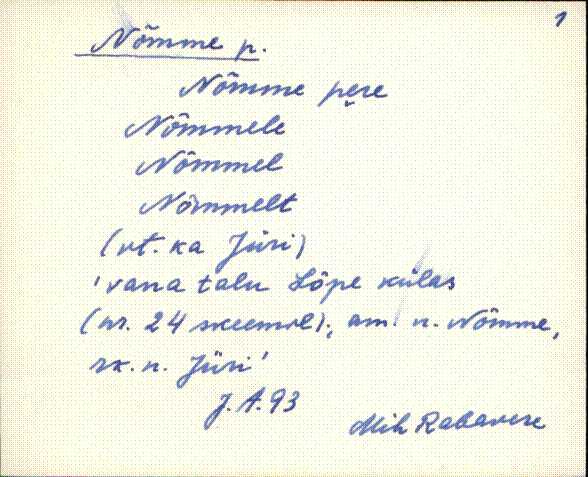 1
Nõmme p.
Nõmme pere
Nõmmele
Nõmmel
Nõmmelt
(vt. ka Jüri)
'vana talu Lõpe külas
(nr. 24 skeemil); am. n. Nõmme,
rk. n. Jüri'
J. A. 93
Mih Rabavere